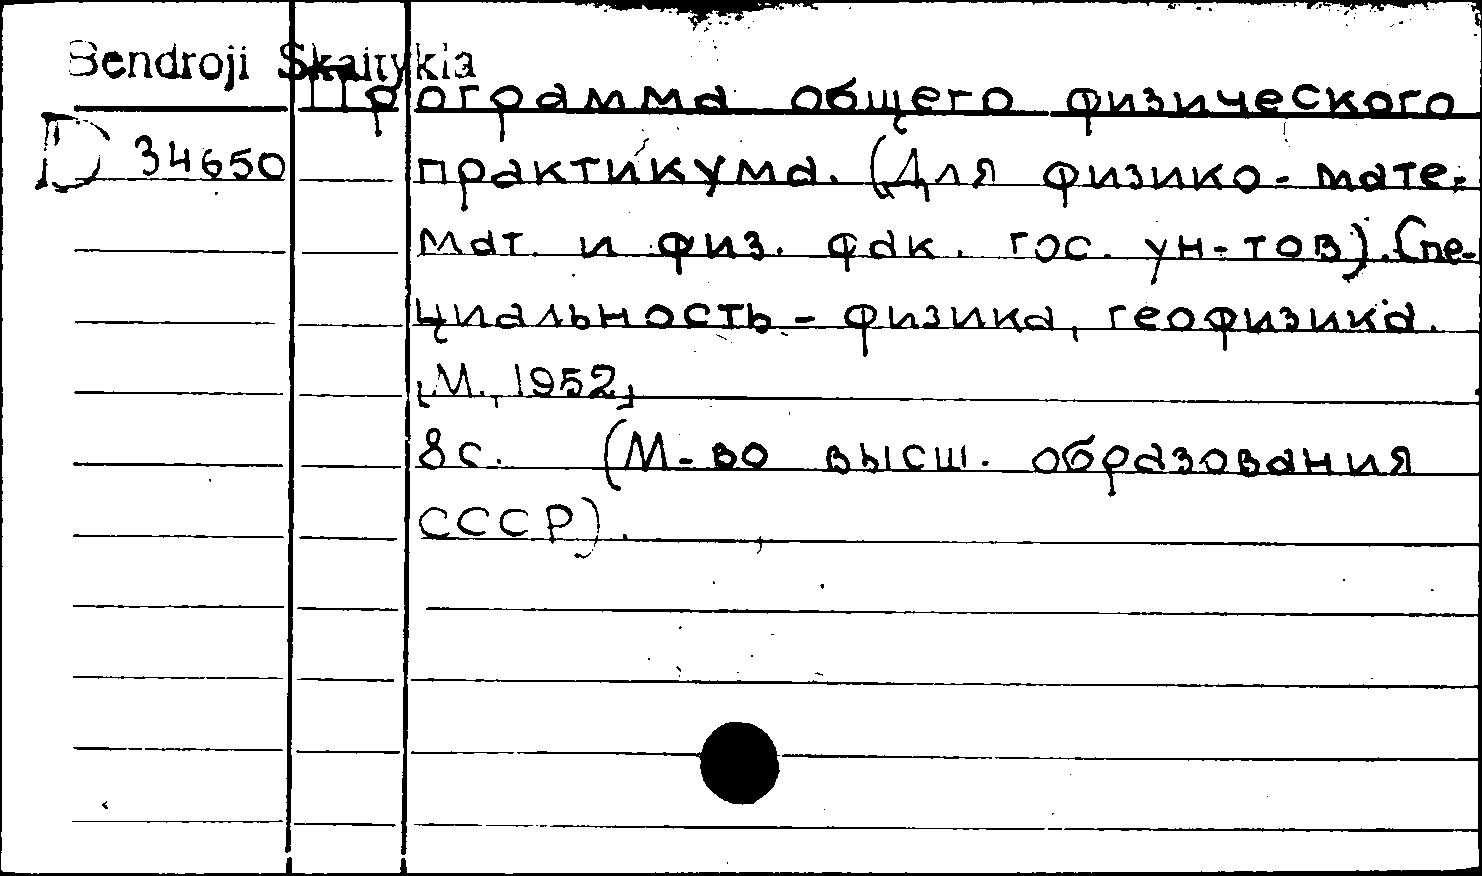 Bendroji Skaitykla
Программа общего физического
D 34650 практикума. (Для физико-мате-
мат. и физ. фак. гос. ун-тов). Спе-
циальность - физика, геофизика.
[М., 1952]
8с. (М-во высш. образования
СССР).